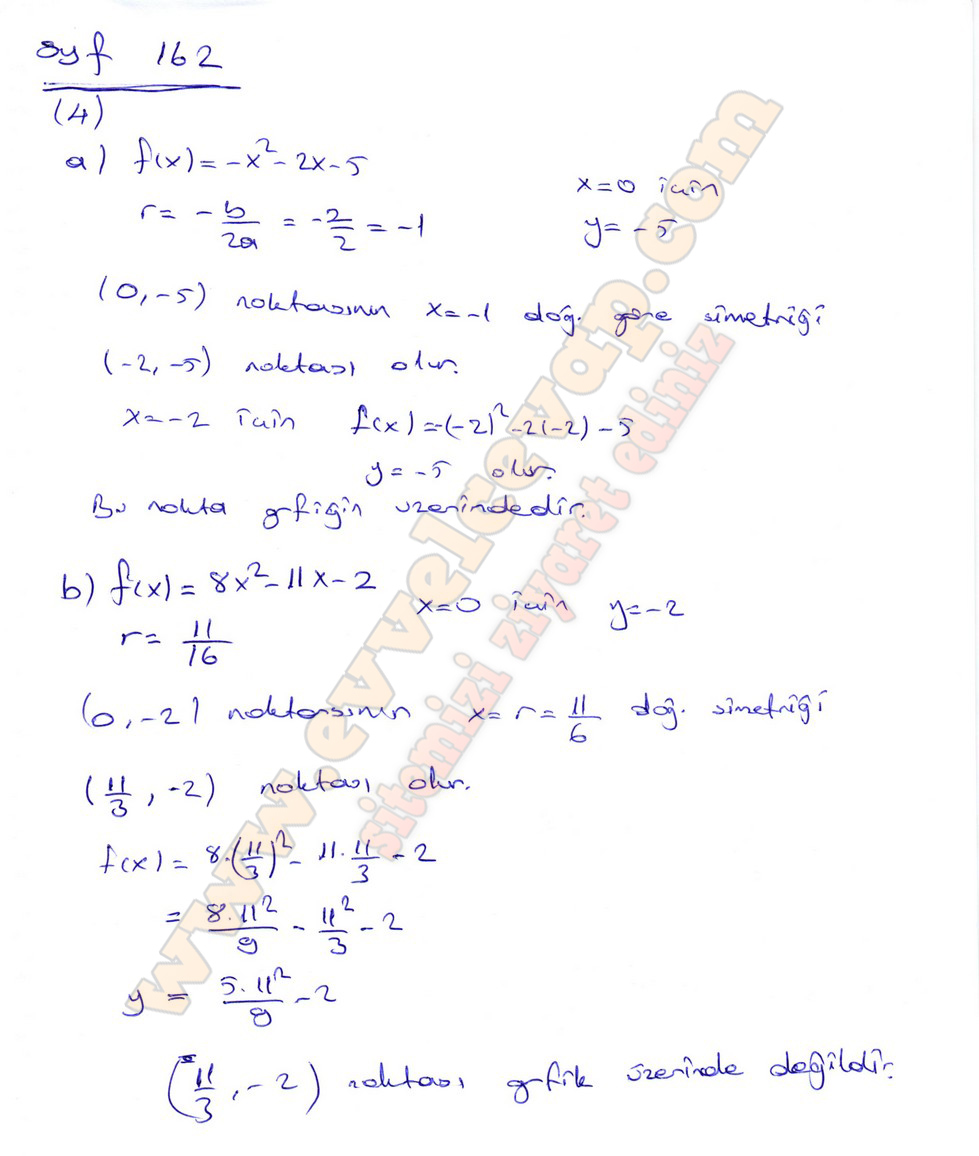 syf 162
(4)
a) f(x) = -x² - 2x - 5
x=0 için
r = -b/2a = -2/2 = -1
y = -5
(0, -5) noktasının x=-1 doğ. göre simetriği
(-2, -5) noktası olur.
x=-2 için f(x) = -(-2)² -2(-2) - 5
y = -5 olur.
Bu nokta grfiğin üzerindedir.
b) f(x) = 8x² - 11x - 2
x=0 için y=-2
r = 11/16
(0, -2) noktasının x = r = 11/6 doğ. simetriği
(11/3, -2) noktası olur.
f(x) = 8.(11/3)² - 11.11/3 - 2
= 8.11²/9 - 11²/3 - 2
y = 5.11²/9 - 2
(11/3, -2) noktası grfik üzerinde değildir.
www.evvelcevap.com
sitemizi ziyaret ediniz